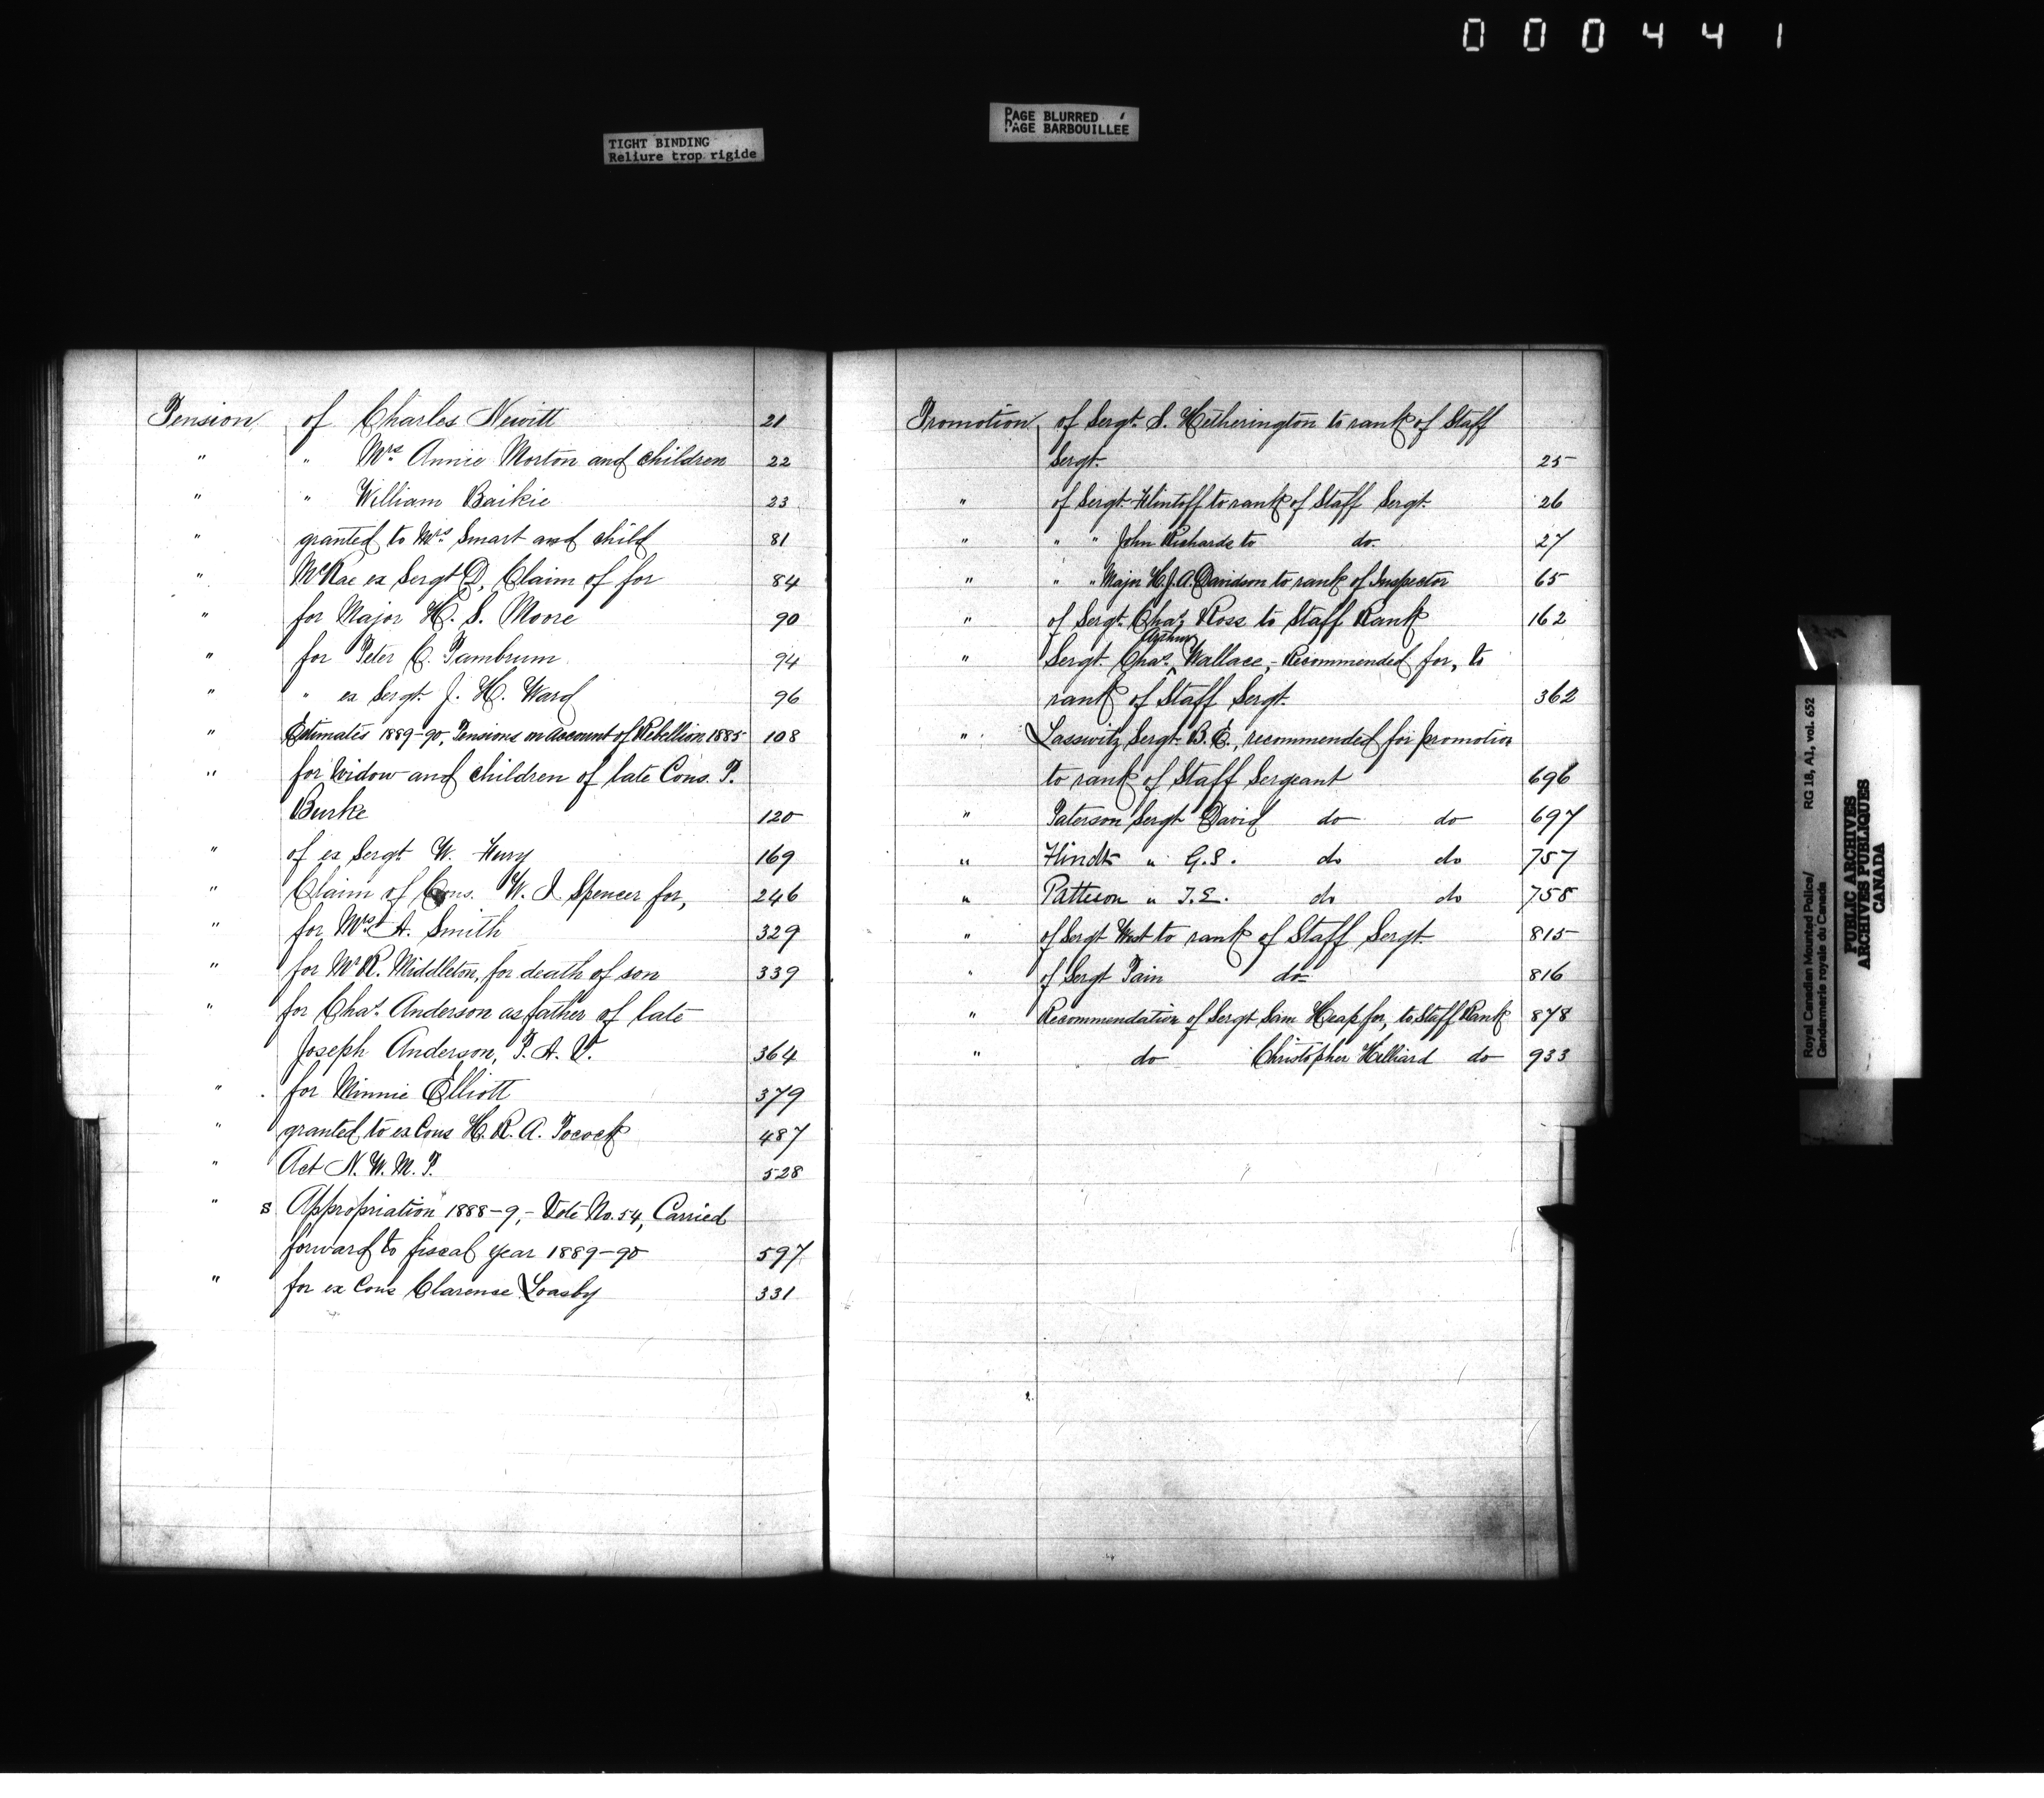 000441
TIGHT BINDING
Reliure trop rigide
PAGE BLURRED
PAGE BARBOUILLÉE
Pension of Charles Newitt 21
" " Mrs. Annie Morton and children 22
" " William Baikie 23
" granted to Mrs. Smart and child 81
" McRae ex Sergt D, Claim of for 84
" for Major H. S. Moore 90
" for Peter C. Pambrum 94
" " ex Sergt. J. H. Ward 96
" Estimates 1889-90, Pensions on account of Rebellion 1885 108
" for widow and children of late Cons. P.
Burke 120
" of ex Sergt W. Fury 169
" Claim of Cons. W. I Spencer for, 246
" for Mrs A. Smith 329
" for Mr R. Middleton, for death of son 339
" for Chas. Anderson as father of late
Joseph Anderson, P. A. V. 364
" for Minnie Elliott 379
" granted to ex Cons H. R. A. Pocock 487
" Act N. W. M. P. 528
" s Appropriation 1888-9,- Vote No. 54, Carried
forward to fiscal year 1889-90 597
" for ex Cons Clarense Loasby 331
Promotion of Sergt. S. Hetherington to rank of Staff
Sergt. 25
" of Sergt. Flintoff to rank of Staff Sergt. 26
" " " John Richards to do. 27
" " " Major H. J. A. Davidson to rank of Inspector 65
" of Sergt. Chas. Ross to Staff Rank 162
Arthur
" Sergt. Chas. Wallace,- Recommended for, to
rank of Staff Sergt. 362
" Lasswitz Sergt. B. E., recommended for promotion
to rank of Staff Sergeant 696
" Paterson Sergt David do do 697
" Hindt " G.S. do do 757
" Patteson " T.E. do do 758
" of Sergt West to rank of Staff Sergt. 815
" of Sergt Pain do 816
" Recommendation of Sergt Sam Heap for, to Staff Rank 878
" do Christopher Hilliard do 933
Royal Canadian Mounted Police/ RG 18, A1, vol. 652
Gendarmerie royale du Canada
PUBLIC ARCHIVES
ARCHIVES PUBLIQUES
CANADA